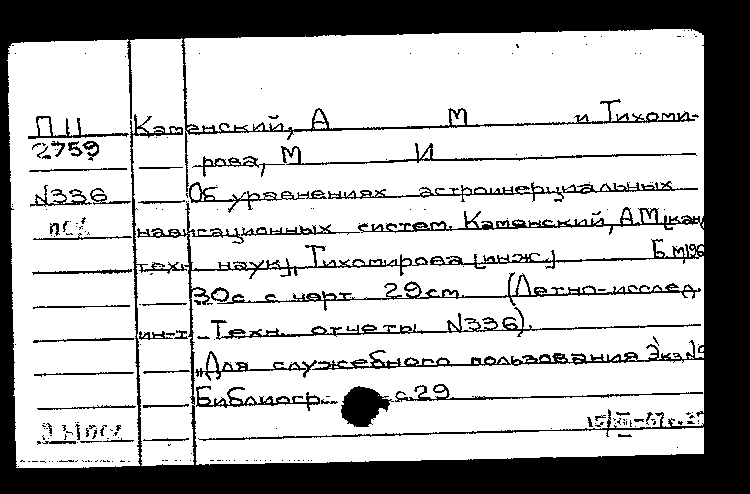 П 11 Каменский, А М и Тихоми-
2759 рова, М И
N336 Об уравнениях астроинерциальных
навигационных систем. Каменский, А.М. [кан
техн. наук], Тихомирова [инж.] Б.м, 196
30с. с черт. 29см. (Летно-исслед.
ин-т. Техн. отчеты. N336).
„Для служебного пользования Экз.№
Библиогр. с.29